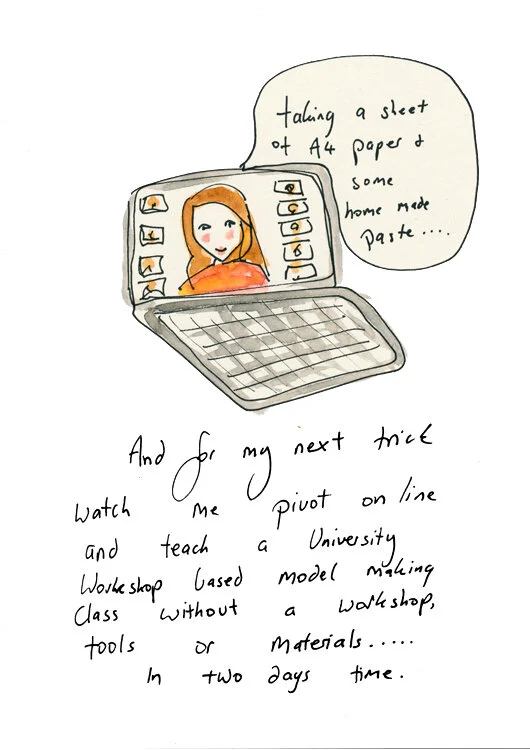 taking a sheet
of A4 paper &
some
home made
paste....
And for my next trick
watch me pivot on line
and teach a University
Workshop based model making
Class without a workshop,
tools or materials.....
In two days time.